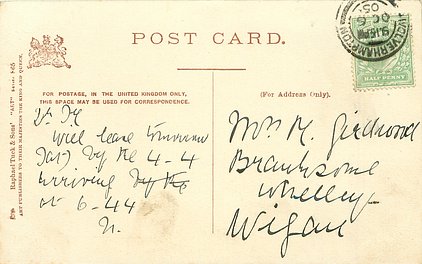 POST CARD.
FOR POSTAGE, IN THE UNITED KINGDOM ONLY,
THIS SPACE MAY BE USED FOR CORRESPONDENCE.
(For Address Only).
Will leave tomorrow
(Sat) by the 4-4
arriving
at 6-44
Mrs M. Girdwood
Branksome
Whelley
Wigan
WOLVERHAMPTON
9.15 PM
OC 6
05
HALF PENNY
Raphael Tuck & Sons' "ART"
ART PUBLISHERS TO THEIR MAJESTIES THE KING AND QUEEN.